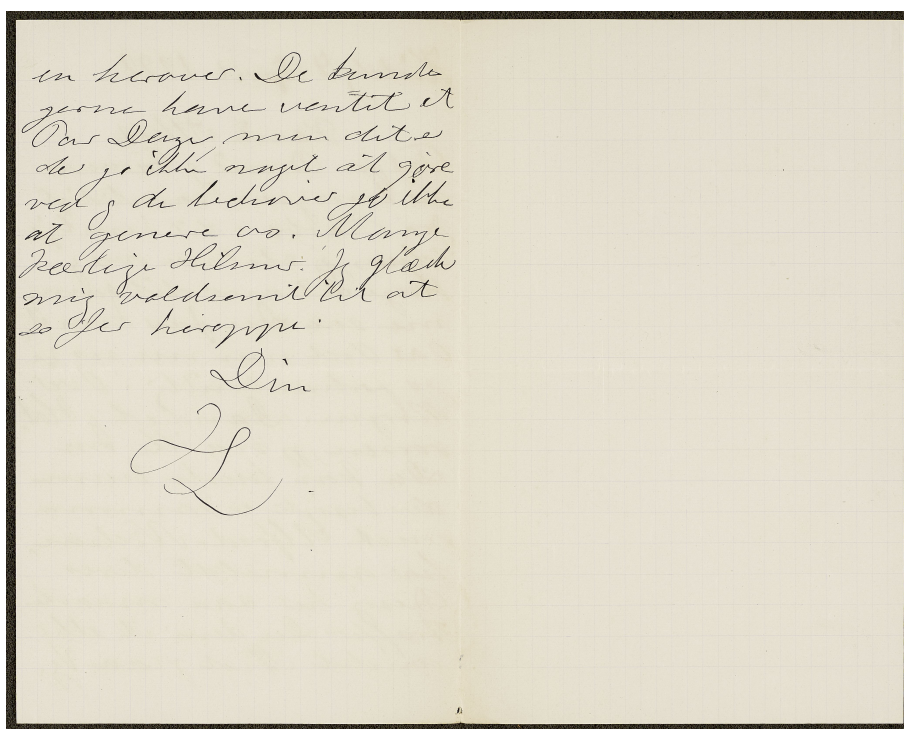 en herover. De kunde
gerne have ventet et
Par Dage, men det er
der jo ikke noget at gøre
ved og de behøver jo ikke
at genere os. Mange
kærlige Hilsner. Jeg glæder
mig voldsomt til at
se Jer heroppe.
Din